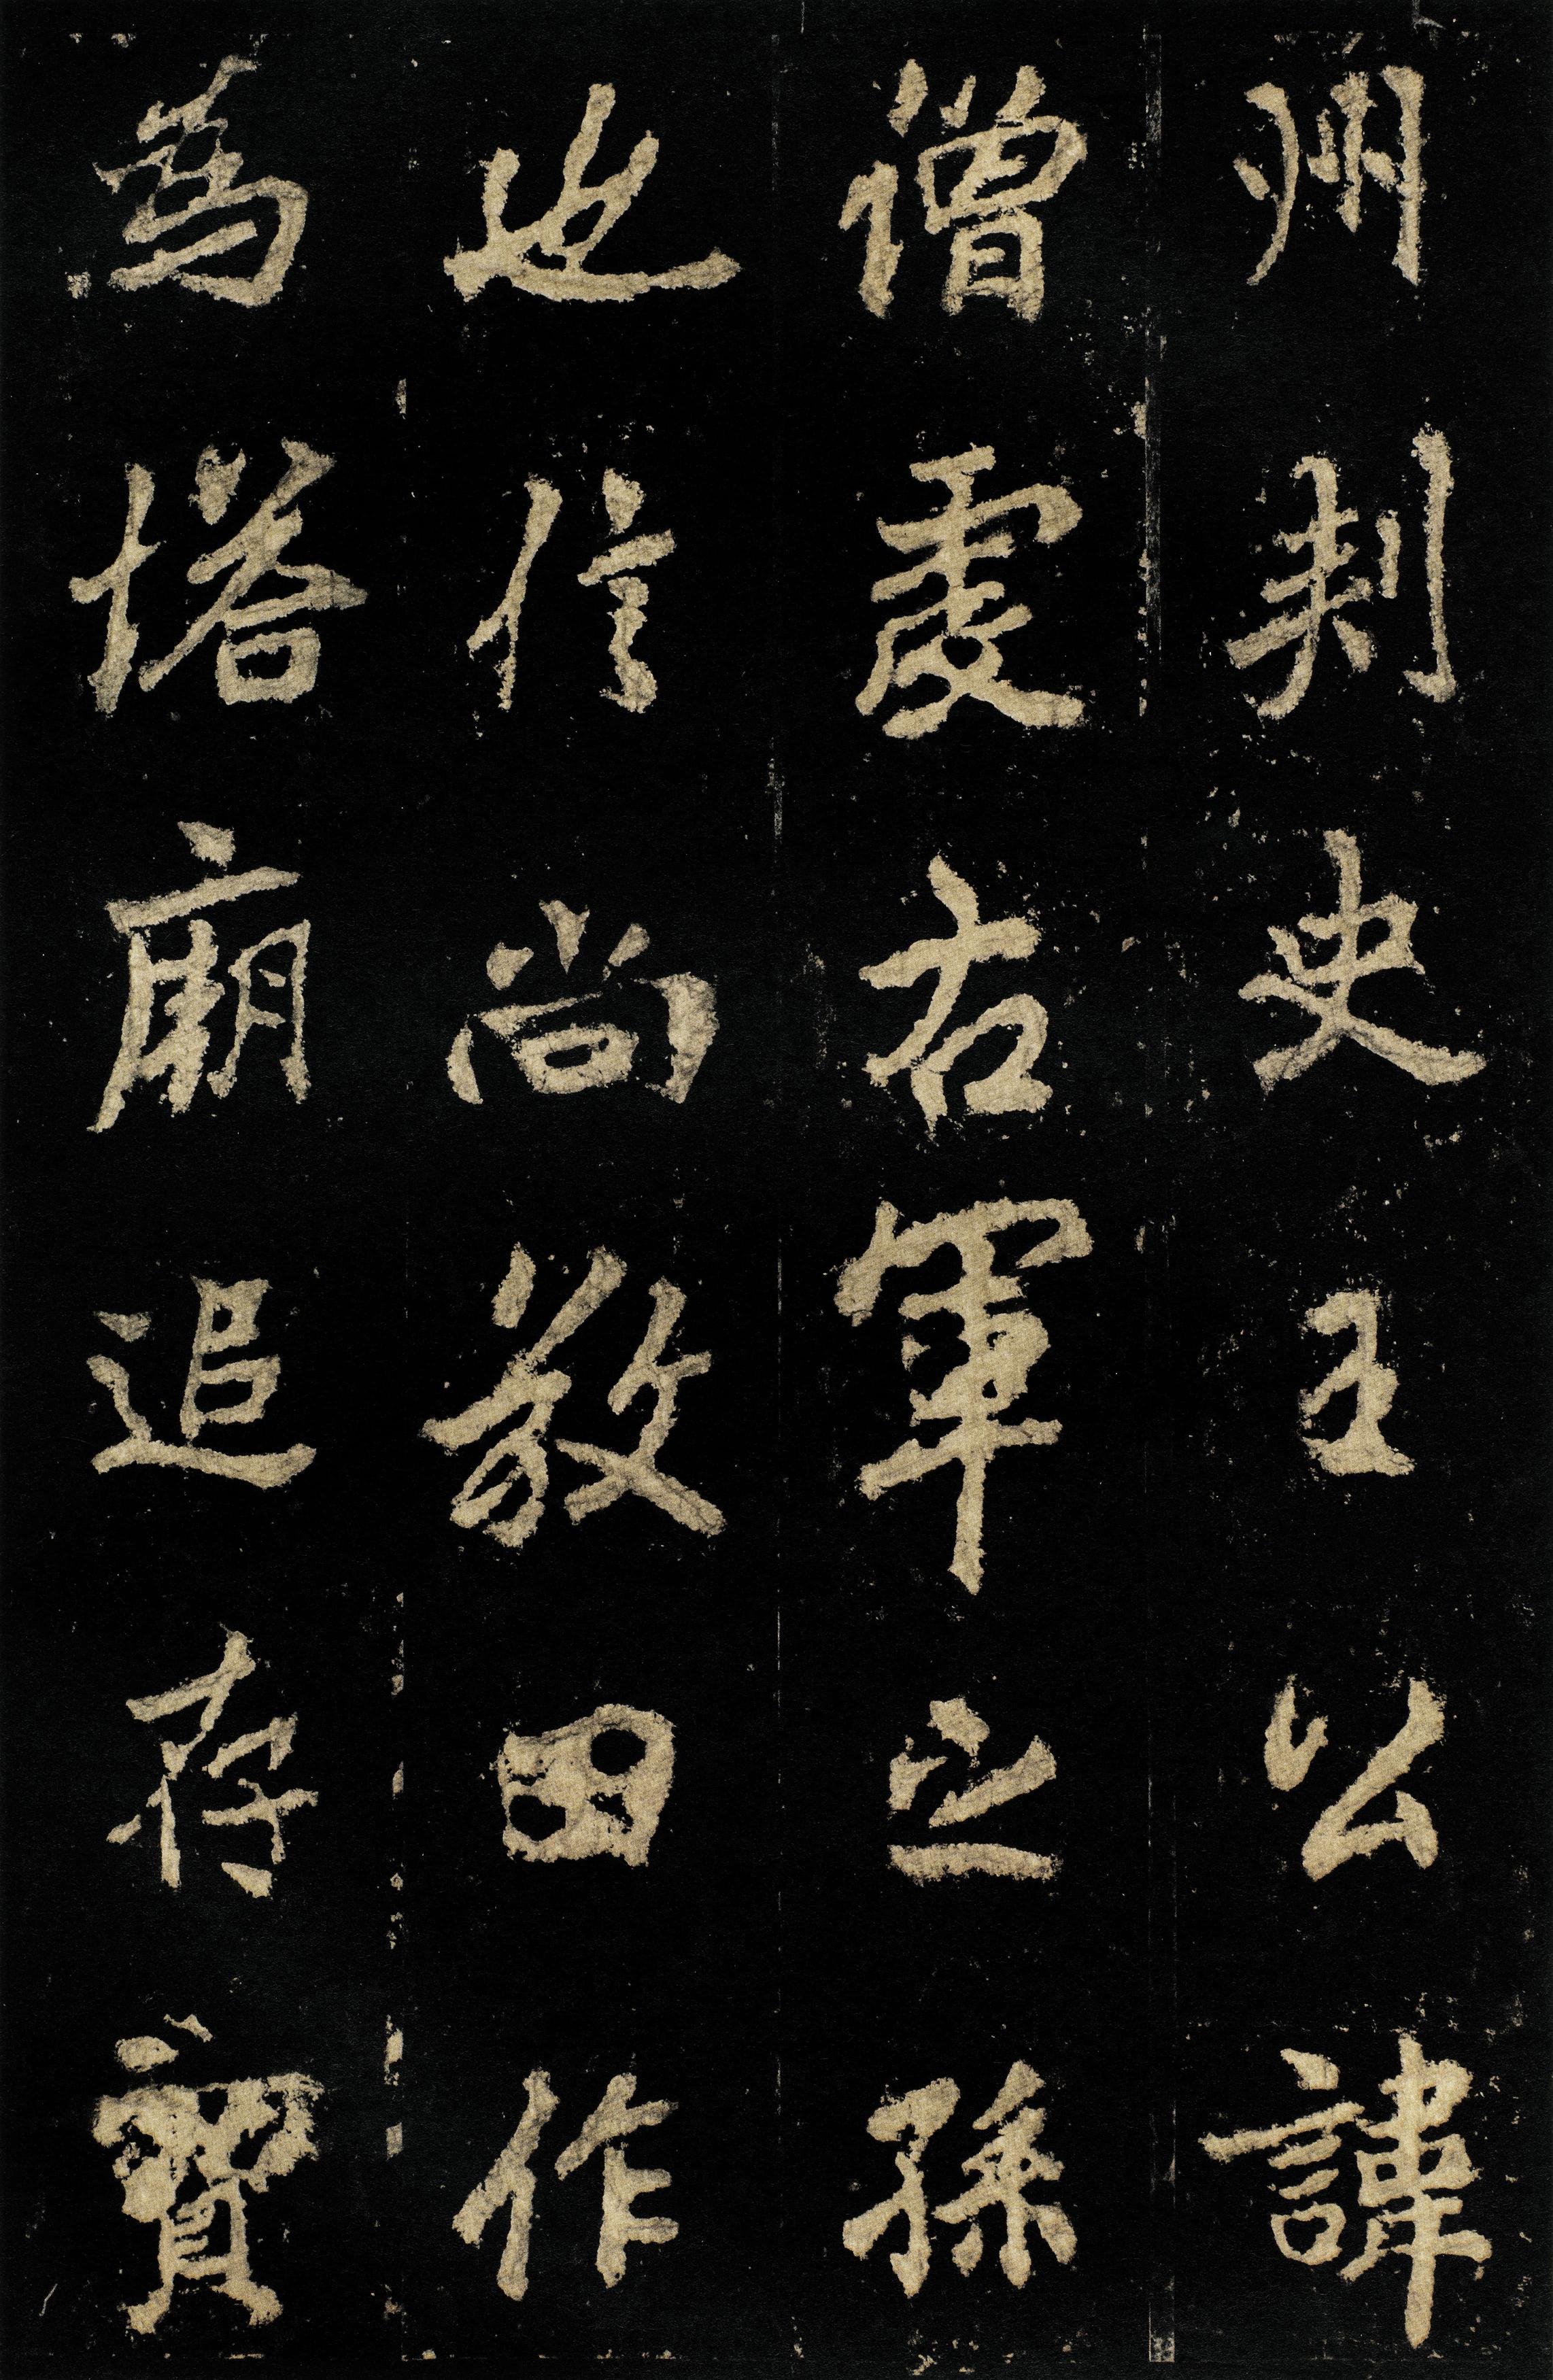 州刺史王公諱
僧虔右軍之孫
也信尚敬田作
為塔廟追存寶